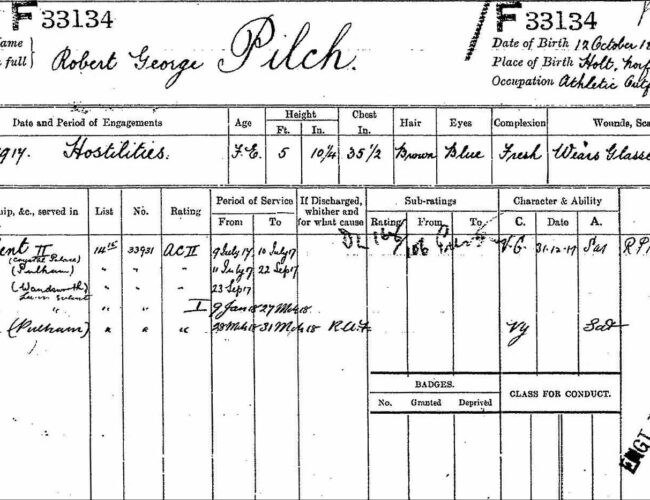 F 33134
F 33134
Name
in full
Robert George Pilch.
Date of Birth 12 October 18
Place of Birth Holt, Norf
Occupation Athletic Outf
Date and Period of Engagements
Age
Height
Ft. In.
Chest
In.
Hair
Eyes
Complexion
Wounds, Sca
1917. Hostilities.
F.E.
5 10¼
35½
Brown
Blue
Fresh
Wears Glasse
ip, &c., served in
List
No.
Rating
Period of Service
From To
If Discharged,
whither and
for what cause
Sub-ratings
Rating From To
Character & Ability
C. Date A.
ent II
(Crystal Palace)
14
33931
AC II
9 July 17 10 July 17
V.G. 31-12-17 Sat
(Pulham) " " " 11 July 17 22 Sep 17
(Wandsworth) " " 23 Sep 17
" " " I 9 Jan 18 27 Mch 18
(Pulham) " " " 28 Mch 18 31 Mch 18 R.A.F. VG Sat
BADGES.
No. Granted Deprived
CLASS FOR CONDUCT.